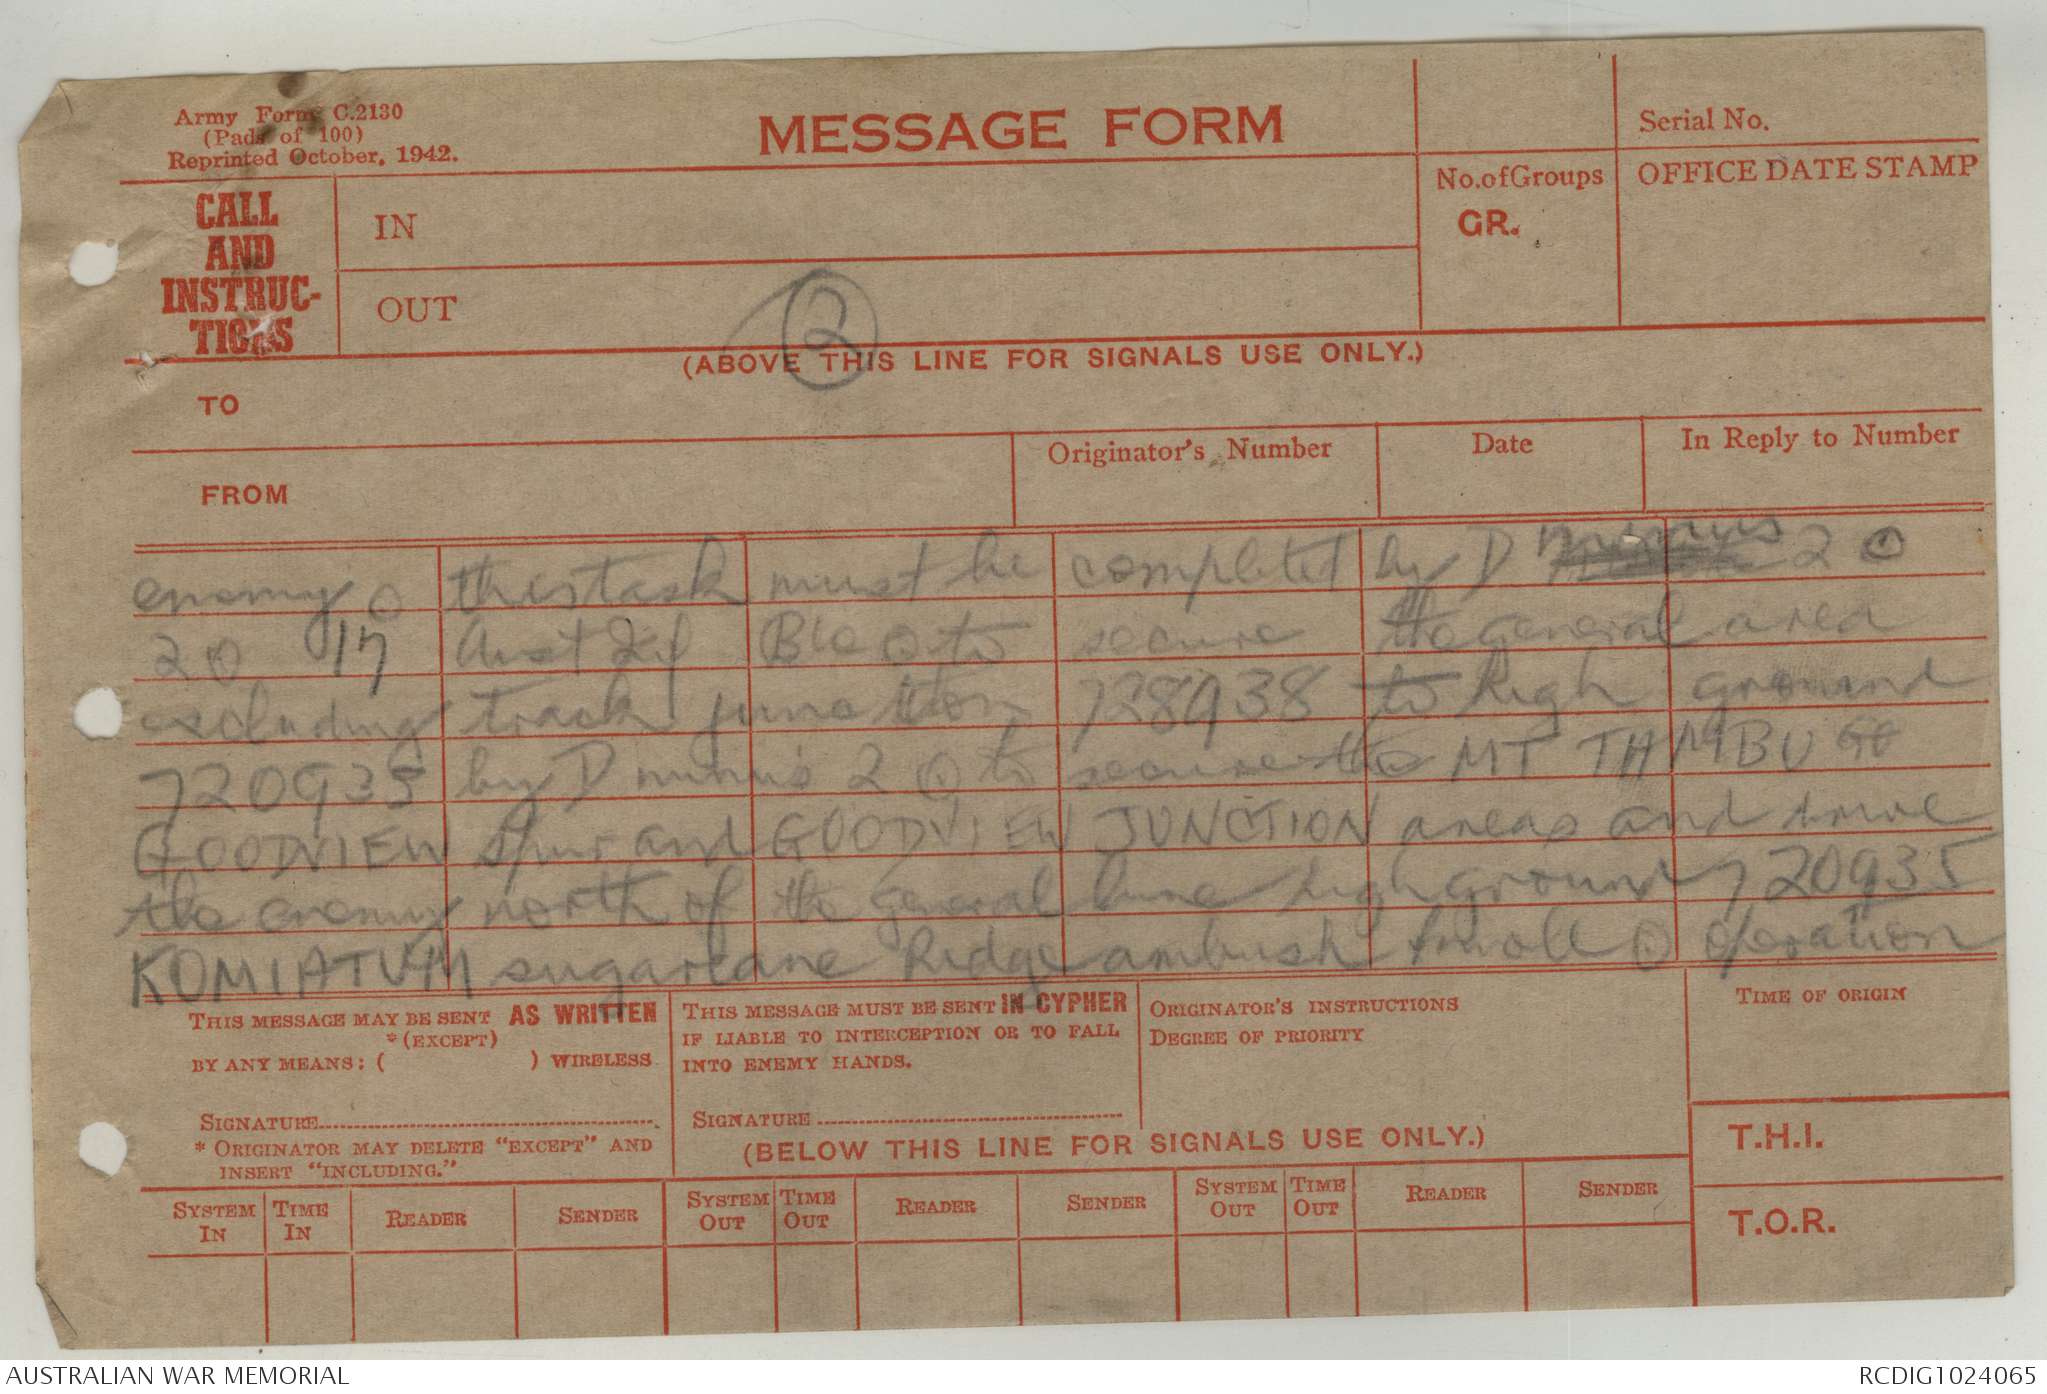 Army Form C.2130
(Pads of 100)
Reprinted October, 1942.
MESSAGE FORM
Serial No.
CALL AND INSTRUC-TIONS
IN
OUT
No. of Groups
GR.
OFFICE DATE STAMP
2
(ABOVE THIS LINE FOR SIGNALS USE ONLY.)
TO
FROM
Originator's Number
Date
In Reply to Number
enemy ⊙ this task must be completed by D minus 2 ⊙
2 ⊙ 17 Aust Inf Bde ⊙ to secure the general area
excluding track junction 728938 to high ground
720935 by D minus 2 ⊙ to secure the MT TAMBU
GOODVIEW Spur and GOODVIEW JUNCTION areas and drive
the enemy north of the general line high ground 720935
KOMIATUM sugarcane Ridge ambush knoll ⊙ operation
THIS MESSAGE MAY BE SENT AS WRITTEN
* (EXCEPT)
BY ANY MEANS: ( ) WIRELESS
SIGNATURE
* ORIGINATOR MAY DELETE "EXCEPT" AND
INSERT "INCLUDING."
THIS MESSAGE MUST BE SENT IN CYPHER
IF LIABLE TO INTERCEPTION OR TO FALL
INTO ENEMY HANDS.
SIGNATURE
ORIGINATOR'S INSTRUCTIONS
DEGREE OF PRIORITY
TIME OF ORIGIN
(BELOW THIS LINE FOR SIGNALS USE ONLY.)
T.H.I.
T.O.R.
SYSTEM IN
TIME IN
READER
SENDER
SYSTEM OUT
TIME OUT
READER
SENDER
SYSTEM OUT
TIME OUT
READER
SENDER
AUSTRALIAN WAR MEMORIAL
RCDIG1024065